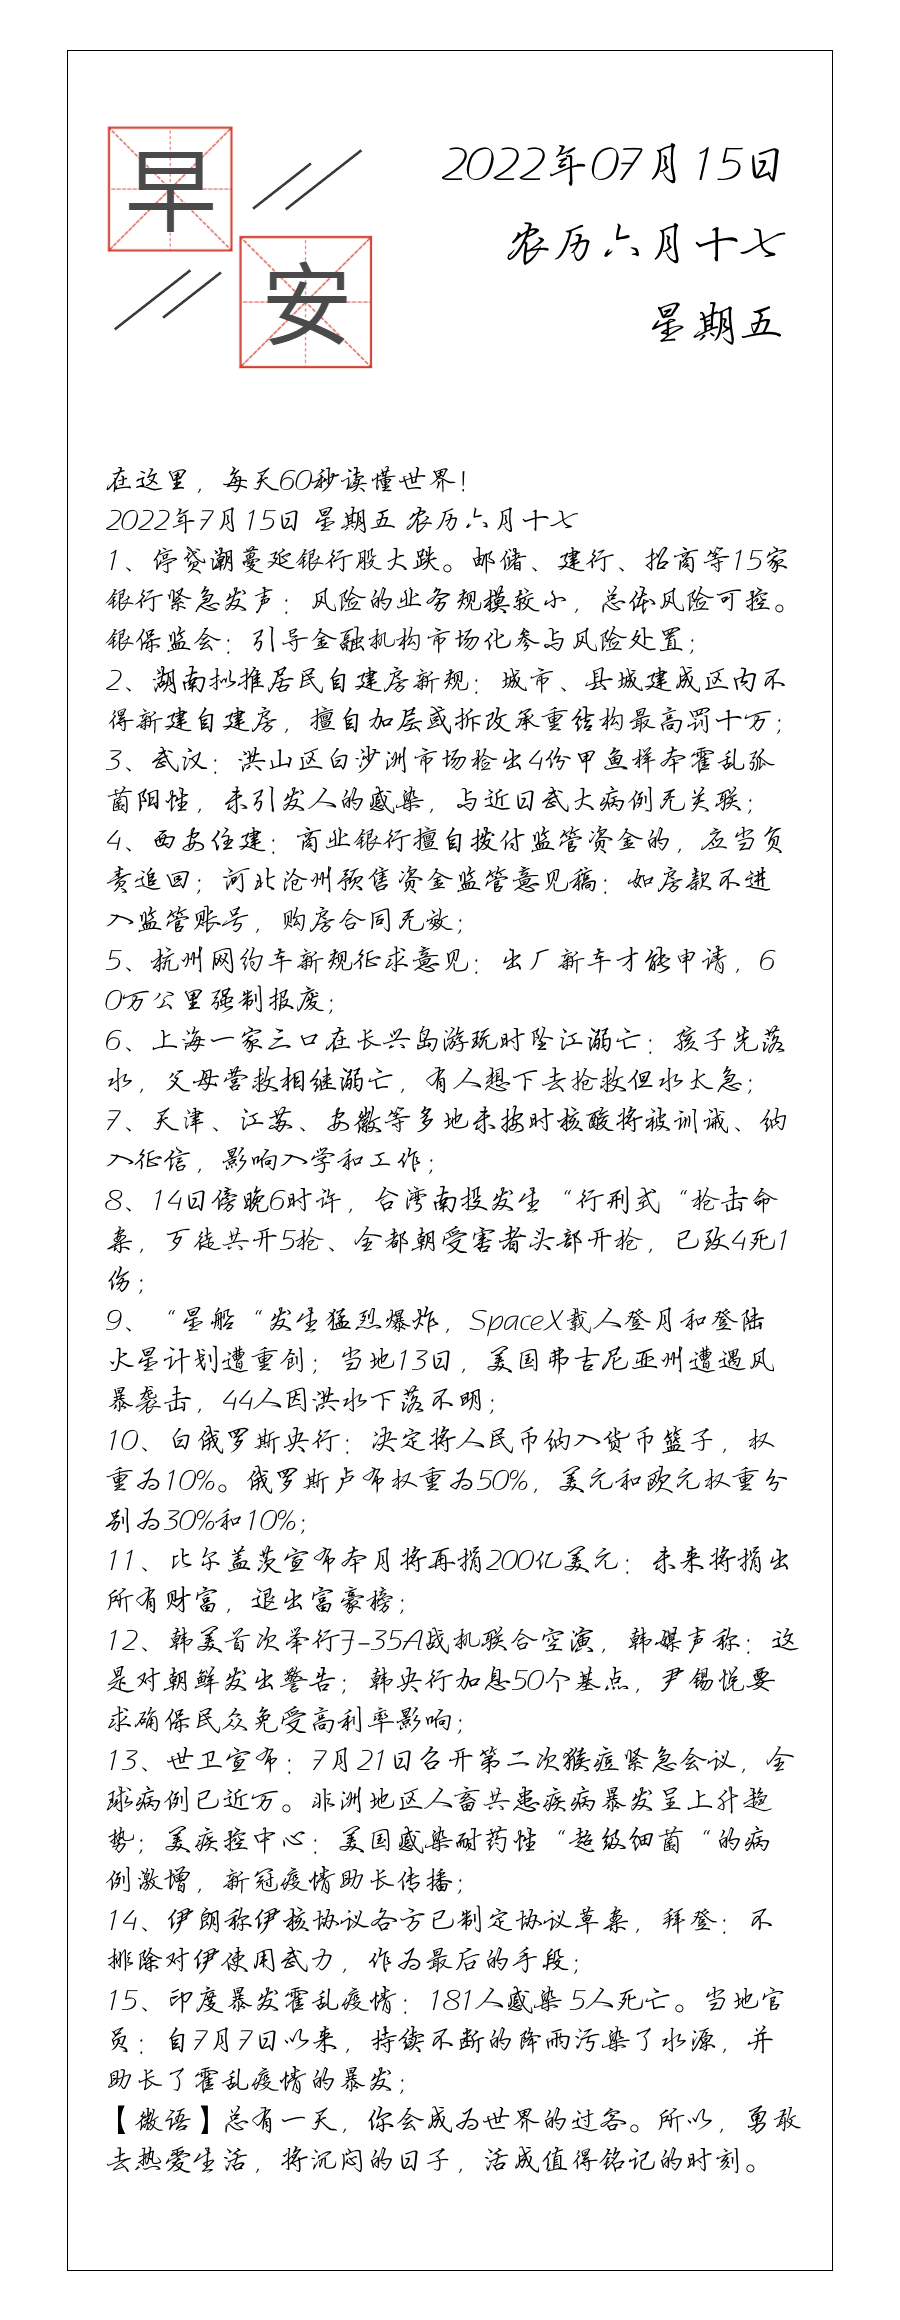 早安
2022年07月15日
农历六月十七
星期五
在这里，每天60秒读懂世界！
2022年7月15日 星期五 农历六月十七
1、停贷潮蔓延银行股大跌。邮储、建行、招商等15家
银行紧急发声：风险的业务规模较小，总体风险可控。
银保监会：引导金融机构市场化参与风险处置；
2、湖南拟推居民自建房新规：城市、县城建成区内不
得新建自建房，擅自加层或拆改承重结构最高罚十万；
3、武汉：洪山区白沙洲市场检出4份甲鱼样本霍乱弧
菌阳性，未引发人的感染，与近日武大病例无关联；
4、西安住建：商业银行擅自拨付监管资金的，应当负
责追回；河北沧州预售资金监管意见稿：如房款不进
入监管账号，购房合同无效；
5、杭州网约车新规征求意见：出厂新车才能申请，6
0万公里强制报废；
6、上海一家三口在长兴岛游玩时坠江溺亡：孩子先落
水，父母营救相继溺亡，有人想下去抢救但水太急；
7、天津、江苏、安徽等多地未按时核酸将被训诫、纳
入征信，影响入学和工作；
8、14日傍晚6时许，台湾南投发生“行刑式“枪击命
案，歹徒共开5枪、全都朝受害者头部开枪，已致4死1
伤；
9、“星船“发生猛烈爆炸，SpaceX载人登月和登陆
火星计划遭重创；当地13日，美国弗吉尼亚州遭遇风
暴袭击，44人因洪水下落不明；
10、白俄罗斯央行：决定将人民币纳入货币篮子，权
重为10%。俄罗斯卢布权重为50%，美元和欧元权重分
别为30%和10%；
11、比尔盖茨宣布本月将再捐200亿美元：未来将捐出
所有财富，退出富豪榜；
12、韩美首次举行F-35A战机联合空演，韩媒声称：这
是对朝鲜发出警告；韩央行加息50个基点，尹锡悦要
求确保民众免受高利率影响；
13、世卫宣布：7月21日召开第二次猴痘紧急会议，全
球病例已近万。非洲地区人畜共患疾病暴发呈上升趋
势；美疾控中心：美国感染耐药性“超级细菌“的病
例激增，新冠疫情助长传播；
14、伊朗称伊核协议各方已制定协议草案，拜登：不
排除对伊使用武力，作为最后的手段；
15、印度暴发霍乱疫情：181人感染 5人死亡。当地官
员：自7月7日以来，持续不断的降雨污染了水源，并
助长了霍乱疫情的暴发；
【微语】总有一天，你会成为世界的过客。所以，勇敢
去热爱生活，将沉闷的日子，活成值得铭记的时刻。